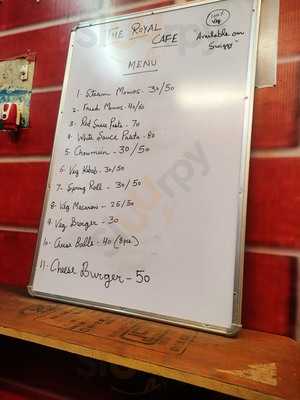 THE ROYAL
CAFE
100%
Veg
Available on
Swiggy
MENU
1- Steam Momos - 30/50
2- Fried Momos - 40/60
3- Red Sauce Pasta - 70
4- White Sauce Pasta - 80
5 Chowmein - 30/50
6- Veg Kabab - 30/50
7- Spring Roll - 30/50
8- Veg Macaroni - 25/50
9- Veg Burger - 30
10- Cheese Balls - 40 (8pcs)
11- Cheese Burger - 50